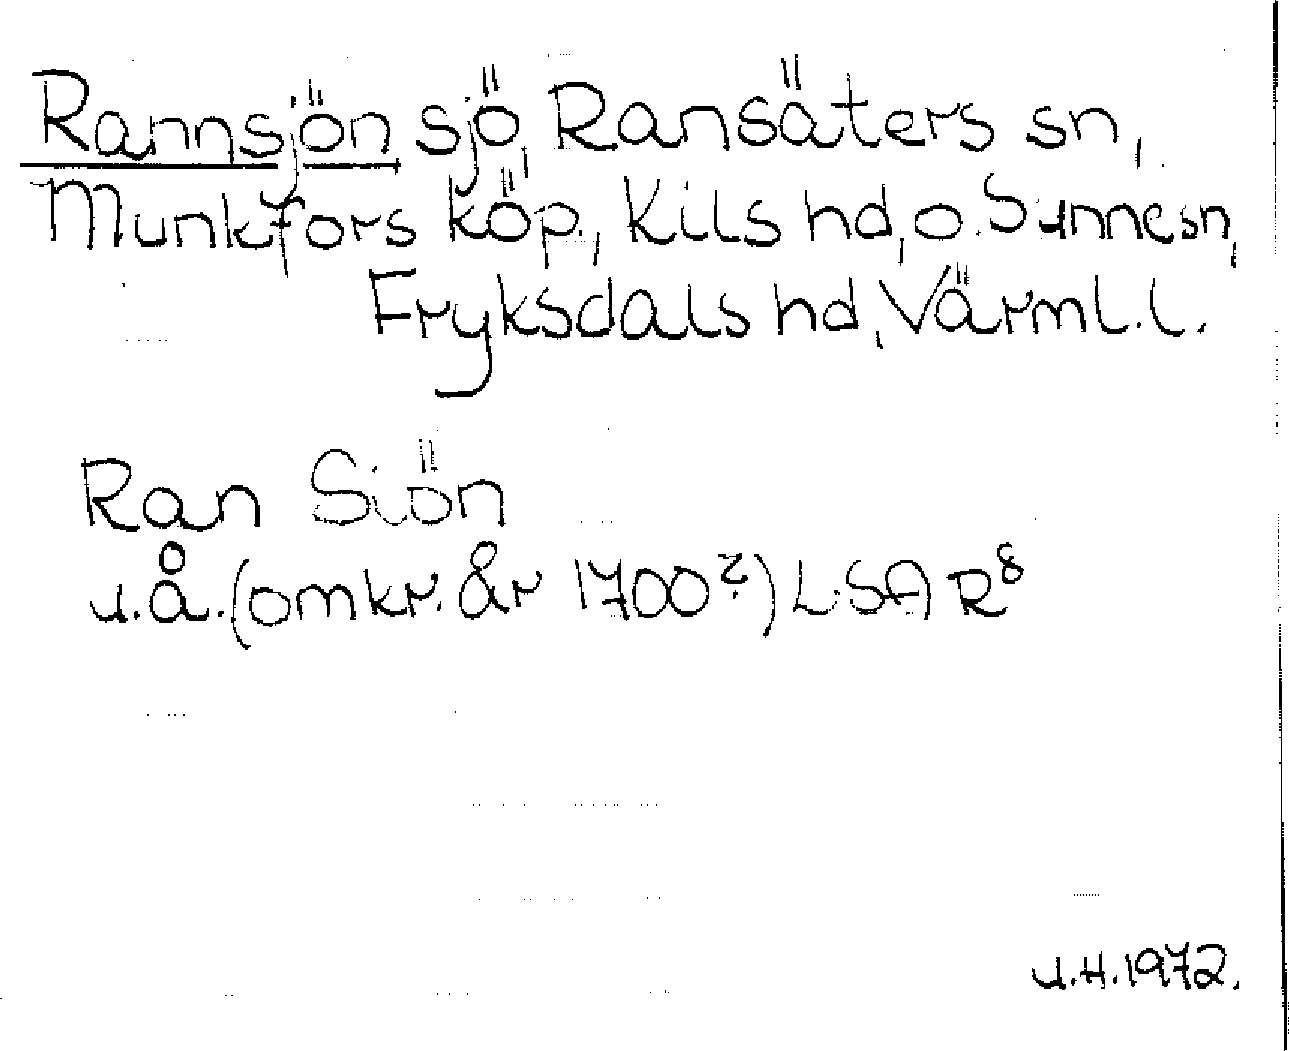 Rannsjön sjö, Ransäters sn,
Munkfors köp., Kils hd, o. Sunne sn,
Fryksdals hd, Värml. l.
Ran Siön
u.å. (omkr. år 1700?) LSA R8
U.H. 1972.